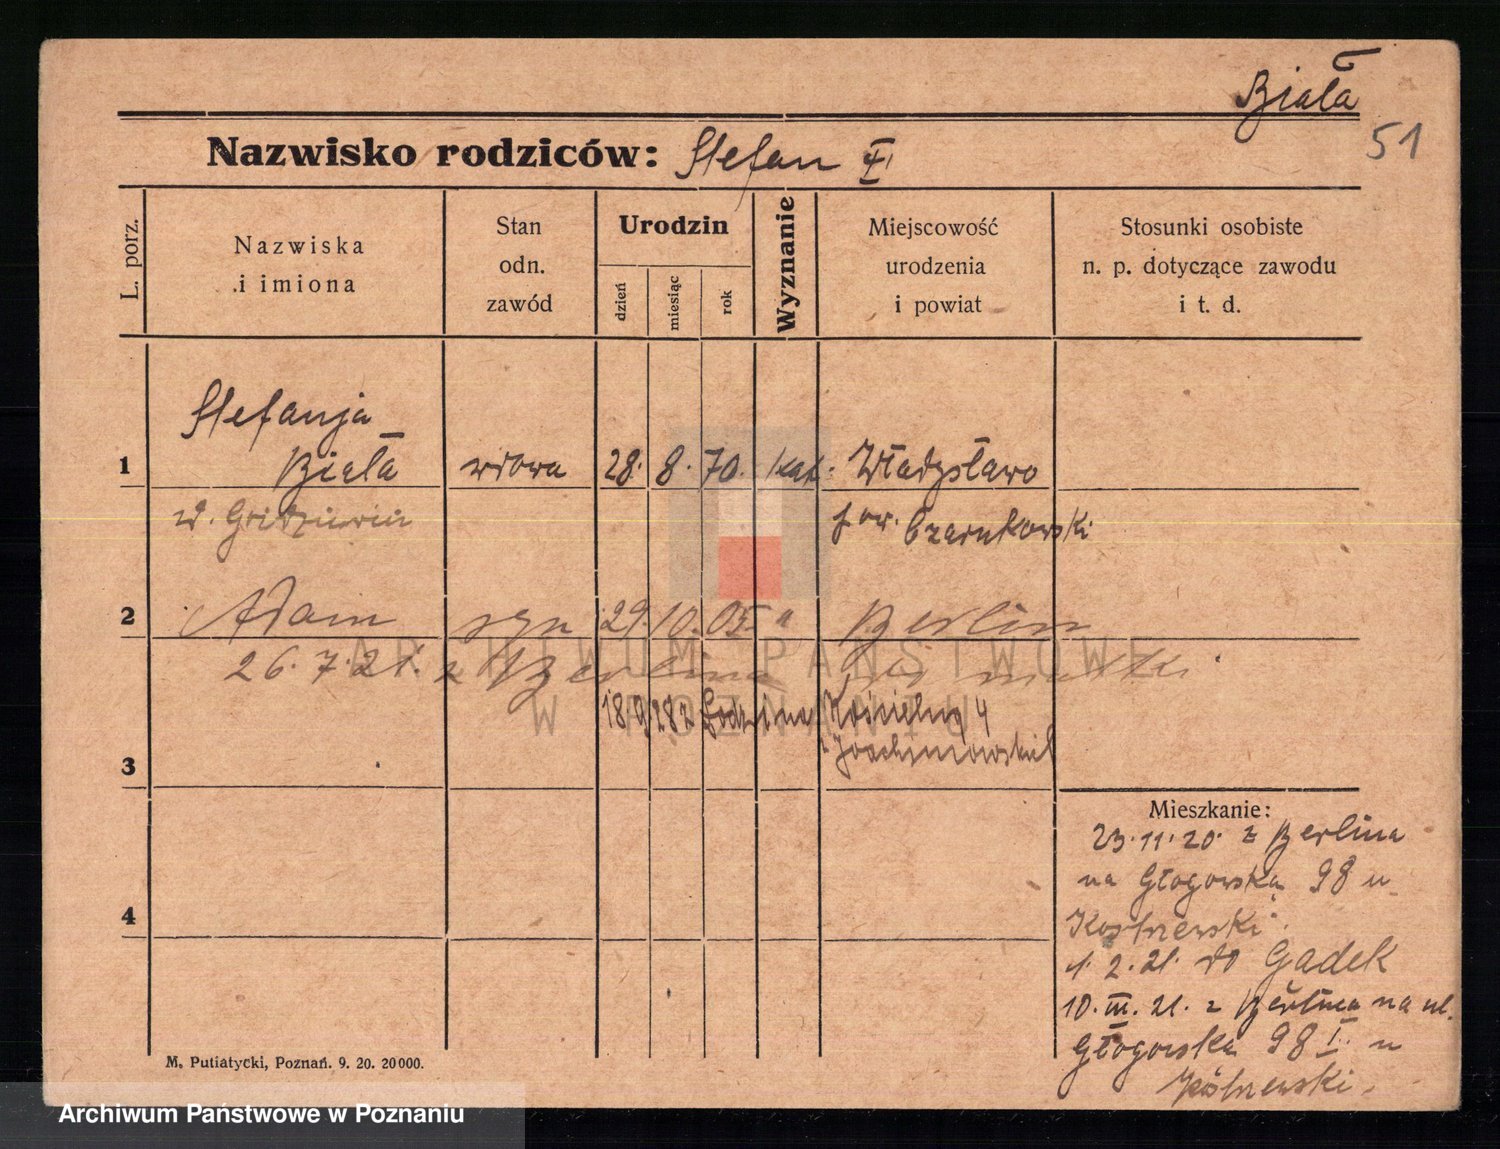 Biała
51
Nazwisko rodziców: Stefan
L. porz.
Nazwiska
i imiona
Stan
odn.
zawód
Urodzin
dzień
miesiąc
rok
Wyznanie
Miejscowość
urodzenia
i powiat
Stosunki osobiste
n. p. dotyczące zawodu
i t. d.
Stefanja
1 Biała wdowa 28. 8. 70. kat. Władysławo
pow. Czarnkowski
2 Adam syn 29. 10. 05 " Berlin
26.7.21. z Berlina do matki
18 9 28 z
Kościelna 4
3
Mieszkanie:
23.11.20. z Berlina
na Głogowska 98 u
4
1.2.21. do Gadek
10.III.21. z Berlina na ul.
Głogowska 98 I. u
M. Putiatycki, Poznań. 9. 20. 20000.
ARCHIWUM PAŃSTWOWE
W POZNANIU
Archiwum Państwowe w Poznaniu